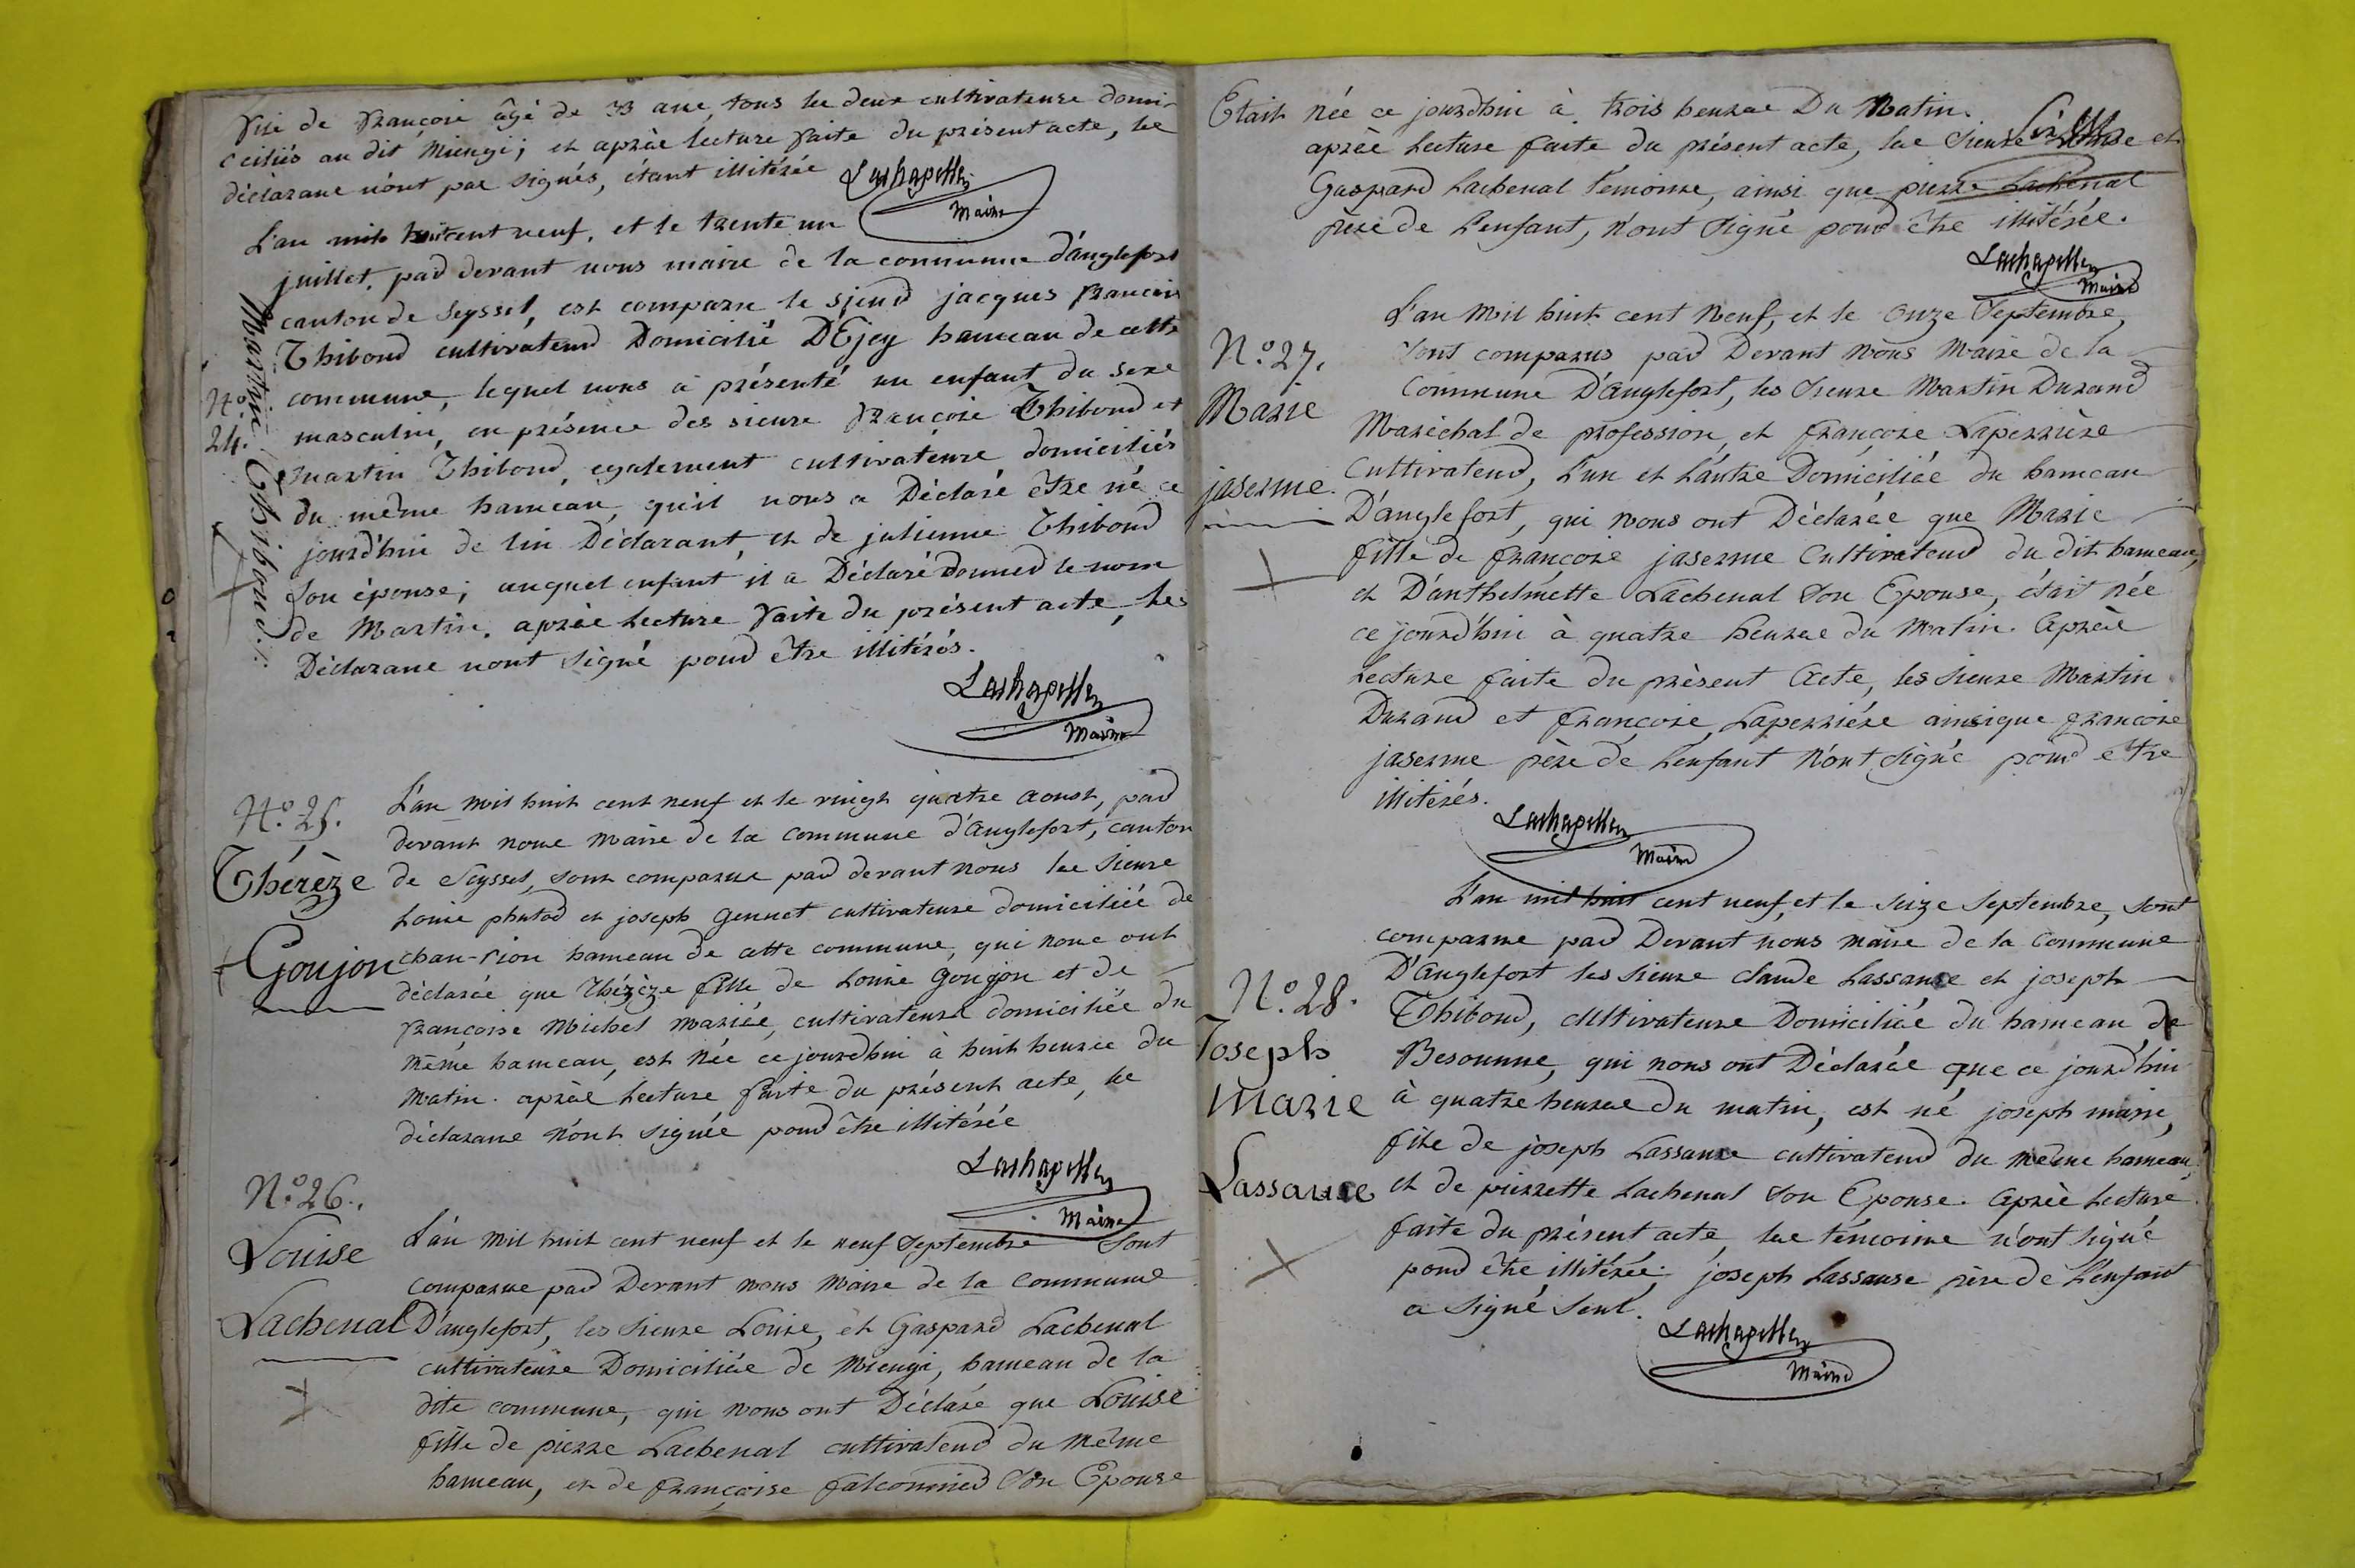 fils de françois âgé de 33 ans, tous les deux cultivateurs domi-
ciliés au dit Miengi; et après lecture faite du présent acte, les
déclarans n'ont pas signés, étant illitérés
Lachapelle
Maire
L'an mil huit cent neuf, et le trente un
juillet, par devant nous maire de la commune d'anglefort
canton de Seyssel, est comparu le sieur jacques françois
Thiboud cultivateur Domicilié D'Ejey hameau de cette
commune, lequel nous a présenté un enfant du sexe
masculin, en présence des sieurs françois Thiboud et
martin Thiboud, egalement cultivateurs domiciliés
du même hameau, qu'il nous a Déclaré être né ce
jourd'hui de lui Déclarant, et de julienne Thiboud
son épouse; auquel enfant il a Déclaré Donner le nom
de Martin. après lecture faite du présent acte, les
Déclarans n'ont signé pour être illitérés.
N.o
24.
Martin Thiboud.
Lachapelle
Maire
N.o 25.
Thérèze
Goujon
L'an mil huit cent neuf et le vingt quatre aoust, par
devant nous maire de la commune d'anglefort, canton
de Seyssel, sont comparus par devant nous les sieurs
Louis phutod et joseph gennet cultivateurs domiciliés de
chan-rion hameau de cette commune, qui nous ont
déclarés que Thérèze fille de Louis Goujon et de
françoise Michel mariés, cultivateurs domiciliés du
même hameau, est née ce jourd'hui à huit heures du
matin. après lecture faite du présent acte, les
déclarans n'ont signés pour être illitérés
Lachapelle
Maire
N.o 26.
Louise
Lachenal
L'an mil huit cent neuf et le neuf Septembre sont
comparus par Devant nous Maire de la commune
D'anglefort, les sieurs Louis, et Gaspard Lachenal
cultivateurs Domiciliés de Miengi, hameau de la
dite commune, qui nous ont Déclaré que Louise
fille de pierre Lachenal cultivateur du même
hameau, et de françoise falconnier son Epouse
Etait née ce jourd'hui à trois heures Du Matin.
après lecture faite du présent acte, les sieurs Louis et
Gaspard Lachenal témoins, ainsi que pierre Lachenal
père de l'enfant, n'ont signé pour être illitérés.
Lachapelle
Maire
N.o 27.
Marie
jaserme.
L'an mil huit cent neuf, et le onze Septembre,
sont comparus par Devant nous Maire de la
Commune D'anglefort, les sieurs Martin Durand
Maréchal de profession, et françois Laperrière
Cultivateur, l'un et l'autre Domiciliés du hameau
D'anglefort, qui nous ont Déclarés que Marie
fille de françois jaserme Cultivateur du dit hameau,
et D'anthelmette Lachenal son Epouse, était née
ce jourd'hui à quatre heures du matin. Après
lecture faite du présent Acte, les sieurs Martin
Durand et françois Laperrière ainsique françois
jaserme père de l'enfant n'ont signé pour etre
illitérés.
Lachapelle
Maire
N.o 28.
Joseph
Marie
Lassauce
L'an mil huit cent neuf, et le seize septembre, sont
comparus par Devant nous maire de la Commune
D'anglefort les sieurs claude Lassauce et joseph
Thiboud, cultivateurs Domiciliés du hameau de
Besounne, qui nous ont Déclarés que ce jourd'hui
à quatre heures du matin, est né joseph marie,
fils de joseph Lassauce cultivateur du même hameau,
et de pierrette Lachenal son Epouse. après lecture
faite du présent acte, les témoins n'ont signé
pour être illitérés. joseph Lassause père de l'enfant
a signé seul.
Lachapelle
Maire